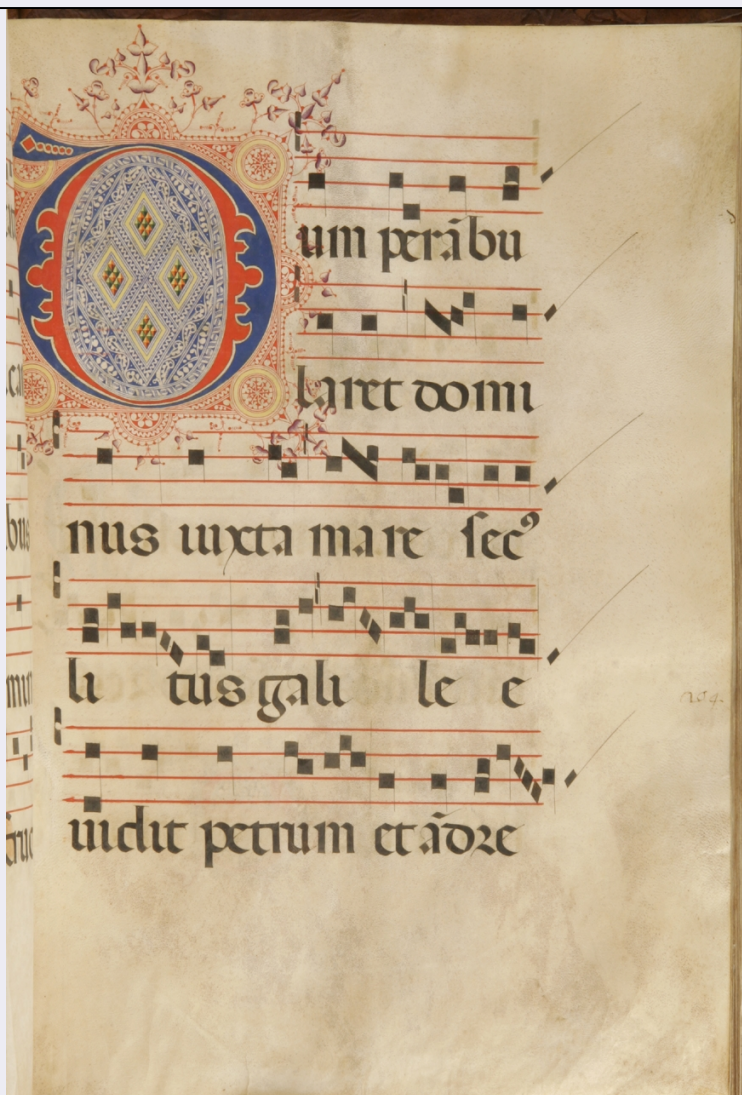 Dum perābu
laret domi
nus iuxta mare sec⁹
li tus gali le e
uidit petrum et ādre